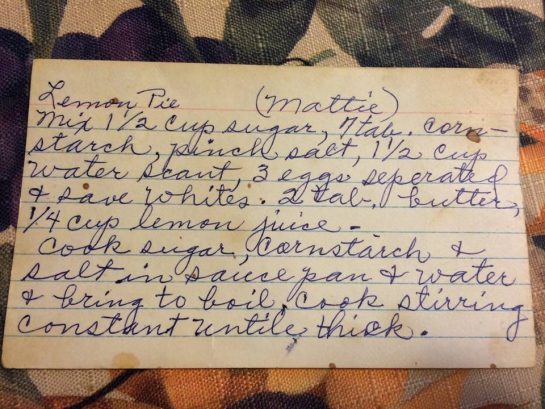 Lemon Pie (Mattie)
Mix 1 1/2 cup sugar, 7 tab. corn-
starch, pinch salt, 1 1/2 cup
water scant, 3 eggs seperated
& save whites. 2 tab. butter,
1/4 cup lemon juice.
Cook sugar, cornstarch &
salt in sauce pan & water
& bring to boil, cook stirring
constant untile thick.